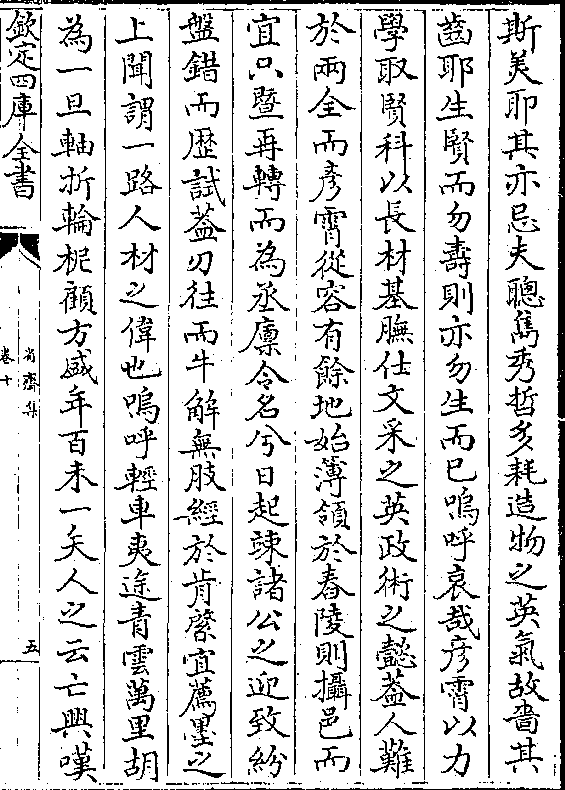 斯美耶其亦忌夫聰雋秀哲多耗造物之英氣故嗇其
齒耶生賢而勿壽則亦勿生而已嗚呼哀哉彦霄以力
學取賢科以長材基膴仕文采之英政術之懿葢人難
於兩全而彦霄從容有餘地始薄領於舂陵則攝邑而
宜只暨再轉而為丞廪令名兮日起竦諸公之迎致紛
盤錯而歴試葢刃往而牛解無肢經於肯綮宜薦墨之
上聞謂一路人材之偉也嗚呼輕車夷途青雲萬里胡
為一旦軸折輪柅顧方盛年百未一矢人之云亡興嘆
欽定四庫全書
尚齋集
卷十
五